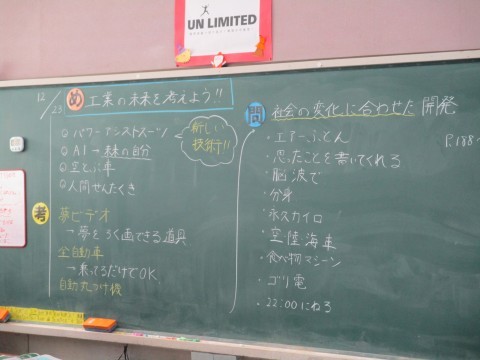 UN LIMITED
12/23
め 工業の未来を考えよう!!
パワーアシストスーツ
AI→未来の自分
空とぶ車
人間せんたくき
新しい技術!!
考
夢ビデオ
→夢をろく画できる道具
全自動車
→乗ってるだけでOK
自動丸つけ機
問 社会の変化に合わせた開発
P.188~
・エアーふとん
・思ったことを書いてくれる
・脳波で
・分身
・ホスカイロ
・空陸海車
・食べ物マシーン
・ゴリ電
・22:00にねる